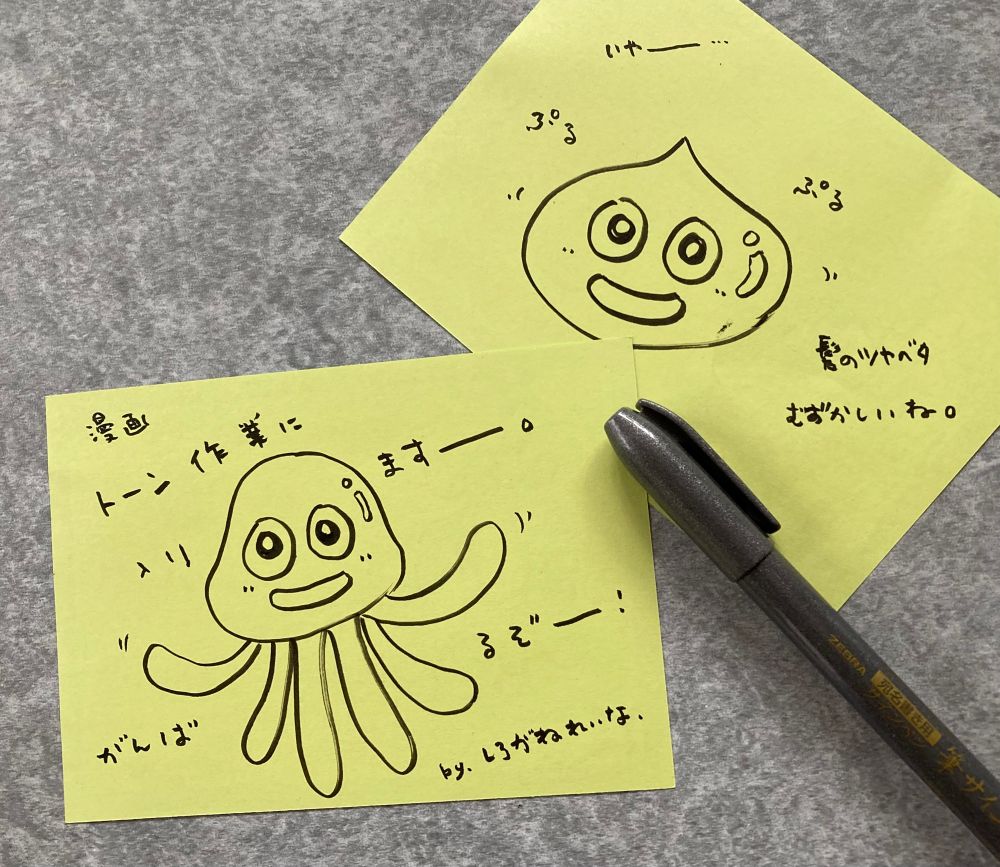 いやー…
ぷる
ぷる
髪のツヤベタ
むずかしいね。
漫画
トーン作業に
入り
ますー。
がんば
るぞー!
by.しろがねれいな.
ZEBRA
宛名書き用
筆サイン